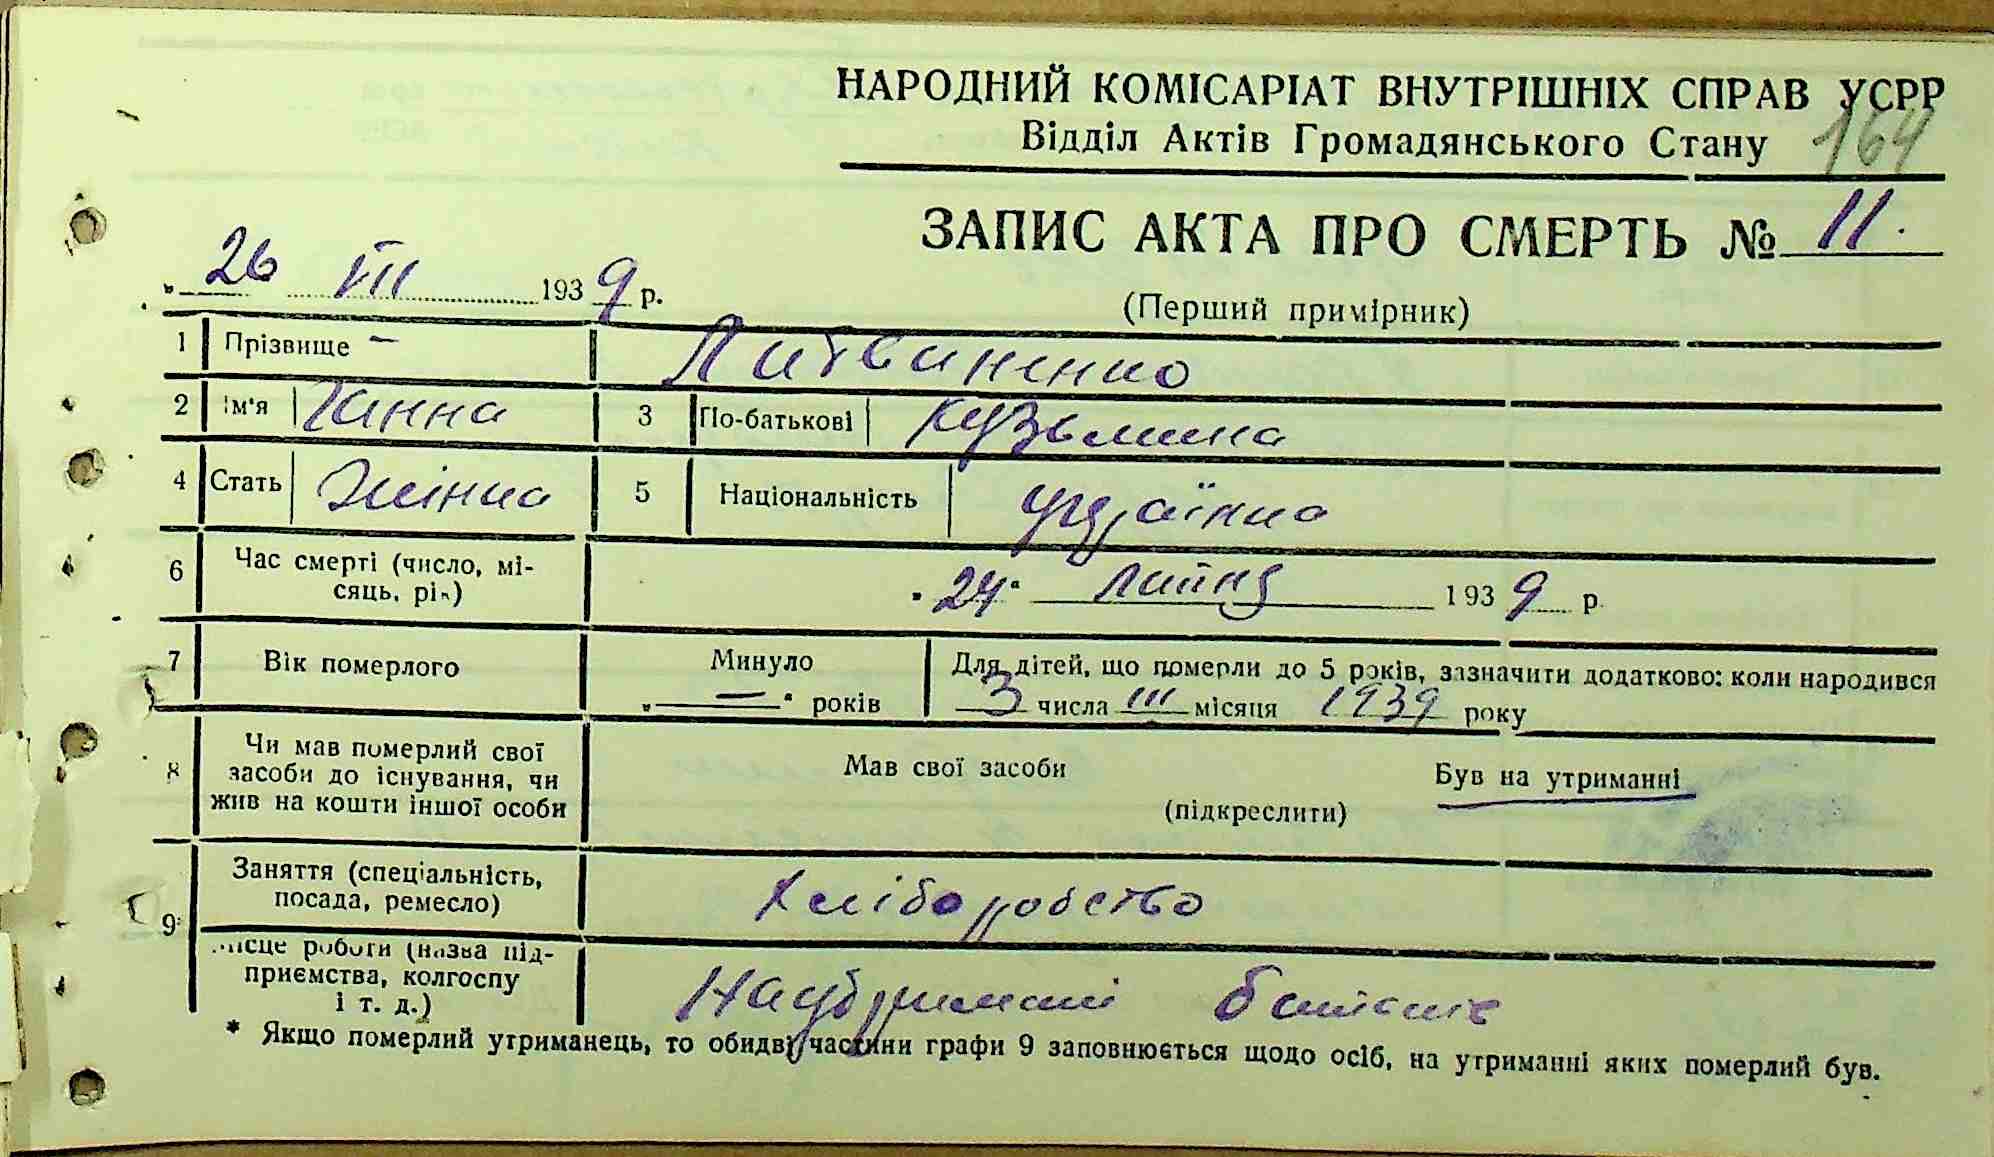 НАРОДНИЙ КОМІСАРІАТ ВНУТРІШНІХ СПРАВ УСРР
Відділ Актів Громадянського Стану 164
ЗАПИС АКТА ПРО СМЕРТЬ № 11.
„ 26 VII 1939 р.
(Перший примірник)
1 Прізвище – Литвиненко
2 Ім'я Ганна 3 По-батькові Кузьмина
4 Стать Жінка 5 Національність Українка
6 Час смерті (число, мі-
сяць, рік) „24“ липня 1939 р.
7 Вік померлого Минуло „ — “ років Для дітей, що померли до 5 років, зазначити додатково: коли народився
3 числа III місяця 1939 року
8 Чи мав померлий свої
засоби до існування, чи
жив на кошти іншої особи
Мав свої засоби Був на утриманні
(підкреслити)
9* Заняття (спеціальність,
посада, ремесло) Хліборобство
Місце роботи (назва під-
приємства, колгоспу
і т. д.)
* Якщо померлий утриманець, то обидві частини графи 9 заповнюється щодо осіб, на утриманні яких померлий був.